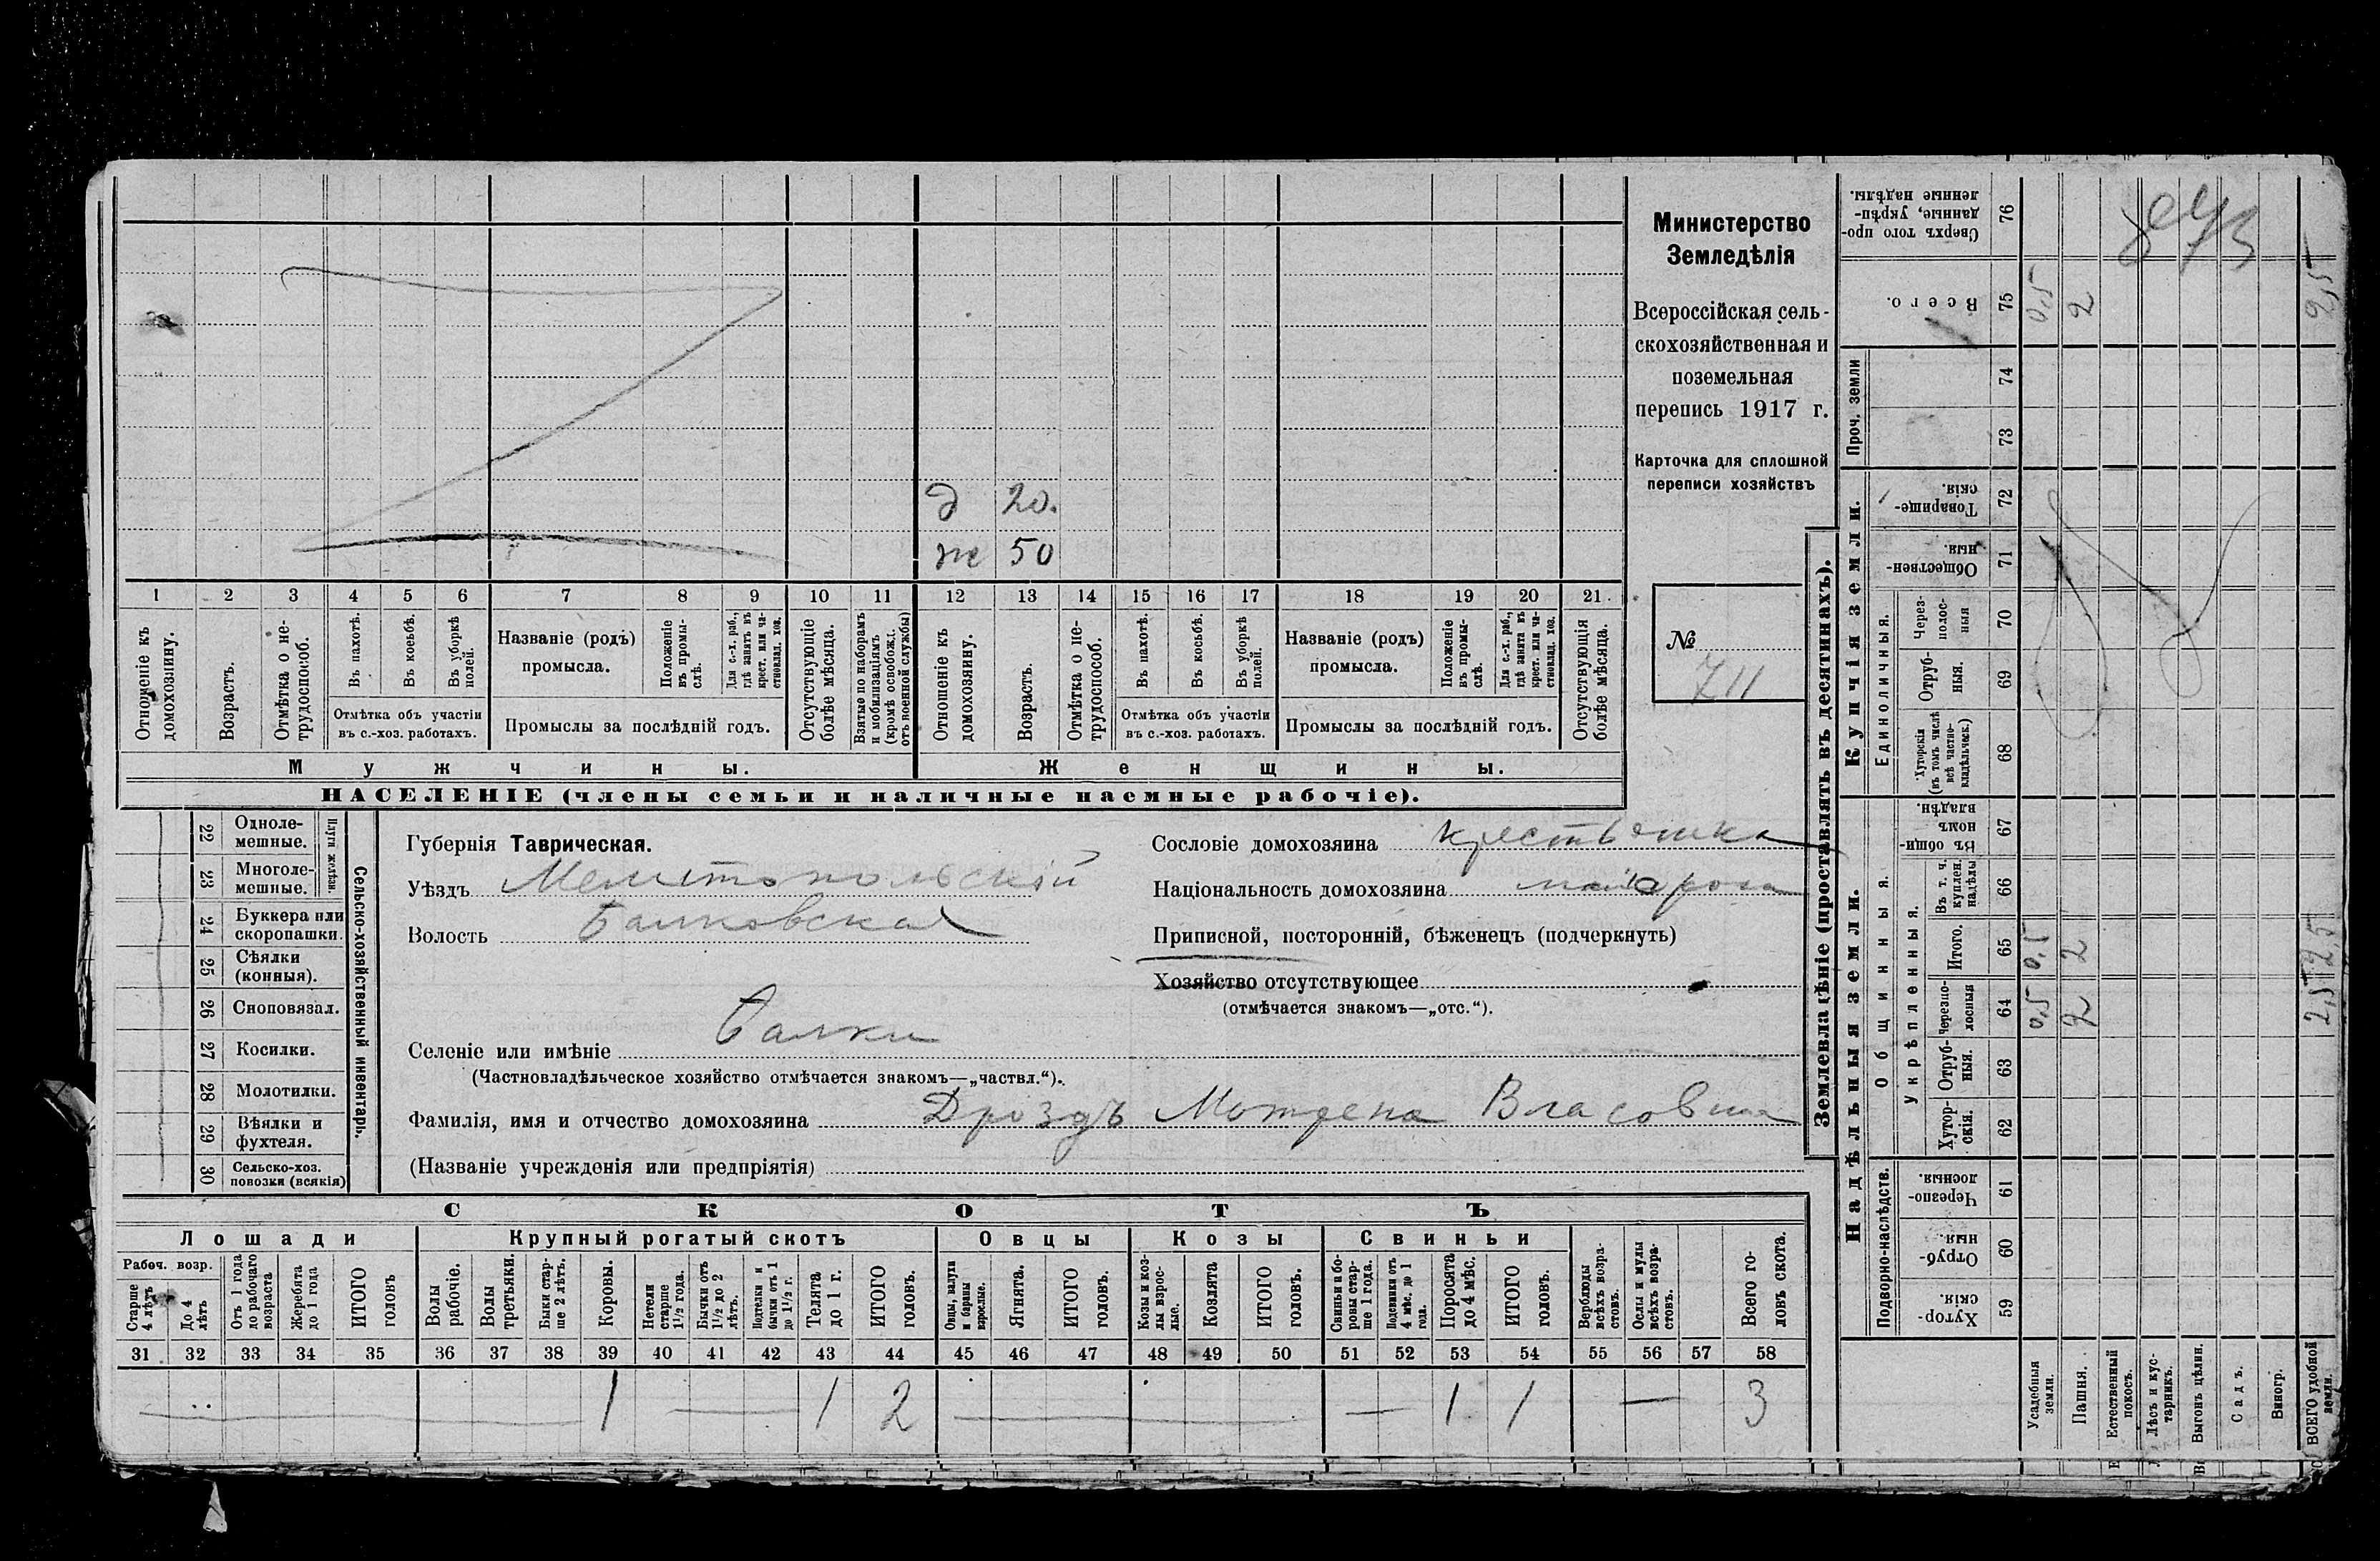 д 20.
ж 50
1 2 3 4 5 6 7 8 9 10 11 12 13 14 15 16 17 18 19 20 21
Отношеніе къ домохозяину.
Возрастъ.
Отмѣтка о не-
трудоспособ.
Въ пахотѣ.
Въ косьбѣ.
Въ уборкѣ
полей.
Отмѣтка объ участіи
въ с.-хоз. работахъ.
Названіе (родъ)
промысла.
Положеніе
въ промы-
слѣ.
Для с.-х. раб.,
гдѣ занятъ въ
крест. или ча-
стновлад. хоз.
Промыслы за послѣдній годъ.
Отсутствующіе
болѣе мѣсяца.
Взятые по наборамъ
и мобилизаціямъ
(кромѣ освобожд.
отъ военной службы)
Отношеніе къ
домохозяину.
Возрастъ.
Отмѣтка о не-
трудоспособ.
Въ пахотѣ.
Въ косьбѣ.
Въ уборкѣ
полей.
Отмѣтка объ участіи
въ с.-хоз. работахъ.
Названіе (родъ)
промысла.
Положеніе
въ промы-
слѣ.
Для с.-х. раб.,
гдѣ занята въ
крест. или ча-
стновлад. хоз.
Промыслы за послѣдній годъ.
Отсутствующія
болѣе мѣсяца.
Мужчины. Женщины.
НАСЕЛЕНІЕ (члены семьи и наличные наемные рабочіе).
Министерство
Земледѣлія
Всероссійская сель-
скохозяйственная и
поземельная
перепись 1917 г.
Карточка для сплошной
переписи хозяйствъ
№
711
Сельско-хозяйственный инвентарь.
Плуги желѣзн.
22 Одноле-
мешные.
23 Многоле-
мешные.
24 Буккера или
скоропашки.
25 Сѣялки
(конныя).
26 Сноповязал.
27 Косилки.
28 Молотилки.
29 Вѣялки и
фухтеля.
30 Сельско-хоз.
повозки (всякія)
Губернія Таврическая.
Уѣздъ Мелитопольскій
Волость Балковская
Сословіе домохозяина крестьянка
Національность домохозяина малоросса
Приписной, посторонній, бѣженецъ (подчеркнуть)
Хозяйство отсутствующее
(отмѣчается знакомъ—„отс.“).
Селеніе или имѣніе Балки
(Частновладѣльческое хозяйство отмѣчается знакомъ—„частвл.“).
Фамилія, имя и отчество домохозяина Дроздъ Мотрена Власовна
(Названіе учрежденія или предпріятія)
СКОТЪ
Лошади Крупный рогатый скотъ Овцы Козы Свиньи
Рабоч. возр.
Старше
4 лѣтъ
До 4
лѣтъ
Отъ 1 года
до рабочаго
возраста
Жеребята
до 1 года
ИТОГО
головъ
Волы
рабочіе.
Волы
третьяки.
Быки стар-
ше 2 лѣтъ.
Коровы.
Нетели
старше
1½ года.
Бычки отъ
1½ до 2
лѣтъ.
Подтелки и
бычки отъ 1
до 1½ г.
Телята
до 1 г.
ИТОГО
головъ.
Овцы, валухи
и бараны
взрослые.
Ягнята.
ИТОГО
головъ.
Козы и коз-
лы взрос-
лые.
Козлята
ИТОГО
головъ.
Свиньи и бо-
ровы стар-
ше 1 года.
Подсвинки отъ
4 мѣс. до 1
года.
Поросята
до 4 мѣс.
ИТОГО
головъ.
Верблюды
всѣхъ возра-
стовъ.
Ослы и мулы
всѣхъ возра-
стовъ.
Всего го-
ловъ скота.
31 32 33 34 35 36 37 38 39 40 41 42 43 44 45 46 47 48 49 50 51 52 53 54 55 56 57 58
1 — 1 2 — — 1 1 — 3
Землевладѣніе (проставлять въ десятинахъ).
Купчія земли.
Надѣльныя земли.
Проч. земли
Единоличныя.
Общинныя.
Укрѣпленныя.
Подворно-наслѣдств.
Сверхъ того про-
данные, укрѣп-
ленные надѣлы. 76
Всего. 75 0,5 2 2,5
74
73
Товарище-
скія. 72
Обществен-
ныя. 71
Через-
полос-
ныя 70
Отруб-
ныя. 69
Хуторскія
(въ томъ числѣ
всѣ частно-
владѣльческ.) 68
Въ общин-
номъ
владѣн. 67
Въ т. ч.
куплен.
надѣлы 66
Итого. 65 0,5 2 2,5
Черезпо-
лосныя 64 0,5 2 2,5
Отруб-
ныя. 63
Хутор-
скія. 62
Черезпо-
лосныя. 61
Отруб-
ныя. 60
Хутор-
скія. 59
Усадебныя
земли.
Пашня.
Естественный
покосъ.
Лѣсъ и кус-
тарникъ.
Выгонъ цѣлин.
Садъ.
Виногр.
ВСЕГО удобной
земли.